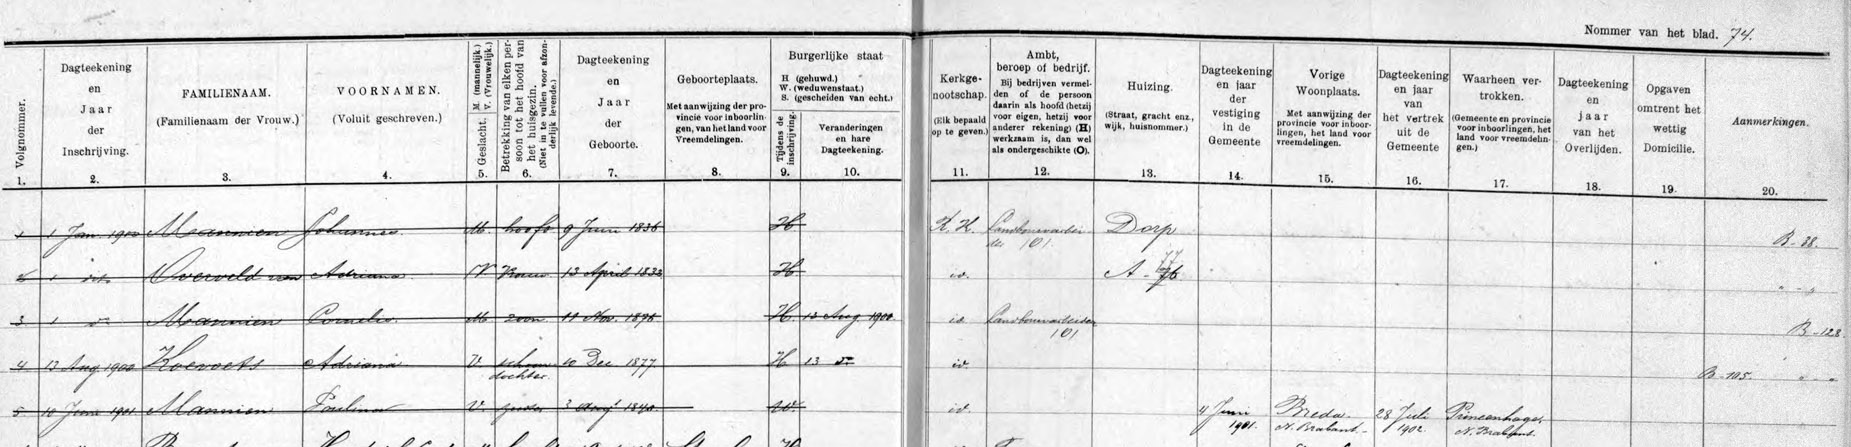 Nommer van het blad. 74.
Volgnommer.
Dagteekening
en
Jaar
der
Inschrijving.
FAMILIENAAM.
(Familienaam der Vrouw.)
VOORNAMEN.
(Voluit geschreven.)
Geslacht. M. (mannelijk.)
V. (Vrouwelijk.)
Betrekking van elken per-
soon tot het hoofd van
het huisgezin.
(Niet in te vullen voor afzon-
derlijk levende.)
Dagteekening
en
Jaar
der
Geboorte.
Geboorteplaats.
Met aanwijzing der pro-
vincie voor inboorlin-
gen, van het land voor
Vreemdelingen.
Burgerlijke staat
H (gehuwd.)
W. (weduwenstaat.)
S. (gescheiden van echt.)
Tijdens de
inschrijving.
Veranderingen
en hare
Dagteekening.
Kerkge-
nootschap.
(Elk bepaald
op te geven.)
Ambt,
beroep of bedrijf.
Bij bedrijven vermel-
den of de persoon
daarin als hoofd (hetzij
voor eigen, hetzij voor
anderer rekening) (H)
werkzaam is, dan wel
als ondergeschikte (O).
Huizing.
(Straat, gracht enz.,
wijk, huisnommer.)
Dagteekening
en jaar
der
vestiging
in de
Gemeente
Vorige
Woonplaats.
Met aanwijzing der
provincie voor inboor-
lingen, het land voor
vreemdelingen.
Dagteekening
en jaar
van
het vertrek
uit de
Gemeente
Waarheen ver-
trokken.
(Gemeente en provincie
voor inboorlingen, het
land voor vreemdelin-
gen.)
Dagteekening
en
jaar
van het
Overlijden.
Opgaven
omtrent het
wettig
Domicilie.
Aanmerkingen.
1. 2. 3. 4. 5. 6. 7. 8. 9. 10. 11. 12. 13. 14. 15. 16. 17. 18. 19. 20.
1 1 Jan. 1900 Mannien Johannes M. hoofd 9 Juni 1836 H R. K. Landbouwarbei-
der (O) Dorp B-38.
2 1 dito Overveld van Adriana V Vrouw 13 April 1832 H id. A - 76 77 " - "
3 1 do Mannien Cornelis M zoon 11 Nov. 1876 H. 13 Aug 1900 id. Landbouwarbeider
(O) B-128
4 13 Aug 1900 Koevoets Adriana V. schoon-
dochter 10 Dec 1877. H 13 do id. B-105. " - "
5 10 Juni 1901 Mannien Paulina V. zuster 1840 W id. 4 Juni
1901. Breda
N. Brabant 28 Juli
1902. Princenhage,
N. Brabant